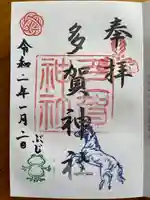 奉拝
多賀神社
令和二年一月二日
ぶじ